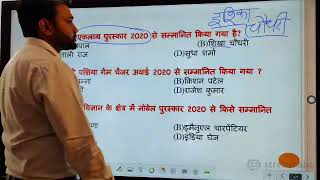 इशिका
चौधरी
एकलव्य पुरस्कार 2020 से सम्मानित किया गया है?
पाल (B)शिखा चौधरी
ताली राज (D)सुधा शर्मा
एशिया गेम चेंजर अवार्ड 2020 से सम्मानित किया गया ?
न्ना (B)किशन पटेल
(D)राजेश कुमार
विज्ञान के क्षेत्र में नोबेल पुरस्कार 2020 से किसे सम्मानित
(B)इमैनुएल चारपेंटियर
(D)इंडिया घेज